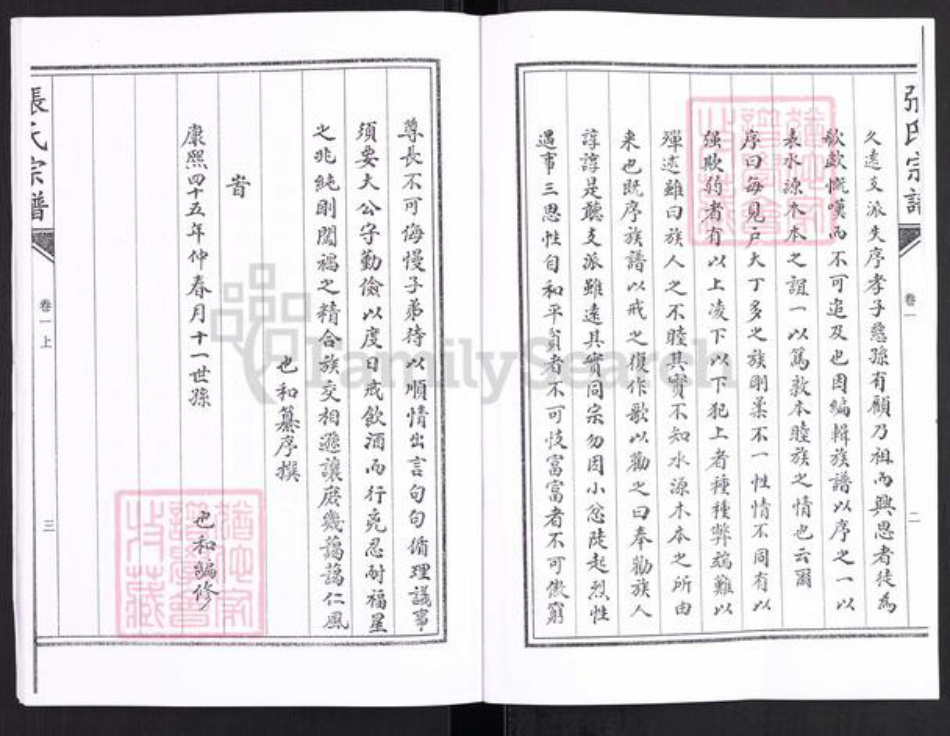 張氏宗譜
卷一
二
久遠支派失序孝子慈孫有顧乃祖而興思者徒為
歔欷慨嘆而不可追及也因編輯族譜以序之一以
表水源木本之誼一以篤敦本睦族之情也云爾
序曰每見户大丁多之族剛柔不一性情不同有以
强欺弱者有以上凌下以下犯上者種種弊端難以
殫述雖曰族人之不睦其實不知水源木本之所由
来也既序族譜以戒之復作歌以勸之曰奉勸族人
諄諄是聽支派雖遠其實同宗勿因小忿陡起烈性
遇事三思性自和平貧者不可忮富富者不可傲窮
尊長不可侮慢子弟待以順情出言句句循理議事
須要大公守勤儉以度日戒飲酒而行兇忍耐福星
之兆純剛闖禍之精合族交相遜讓庶幾藹藹仁風
也和纂序撰
旹
康熙四十五年仲春月十一世孫 也和編修
張氏宗譜
卷一上
三
FamilySearch